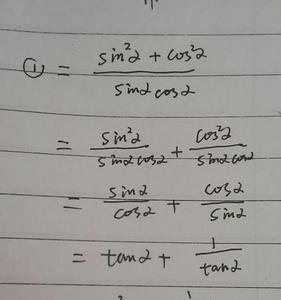 ① = (sin²α + cos²α) / (sinα cosα)
= sin²α / (sinα cosα) + cos²α / (sinα cosα)
= sinα / cosα + cosα / sinα
= tanα + 1 / tanα